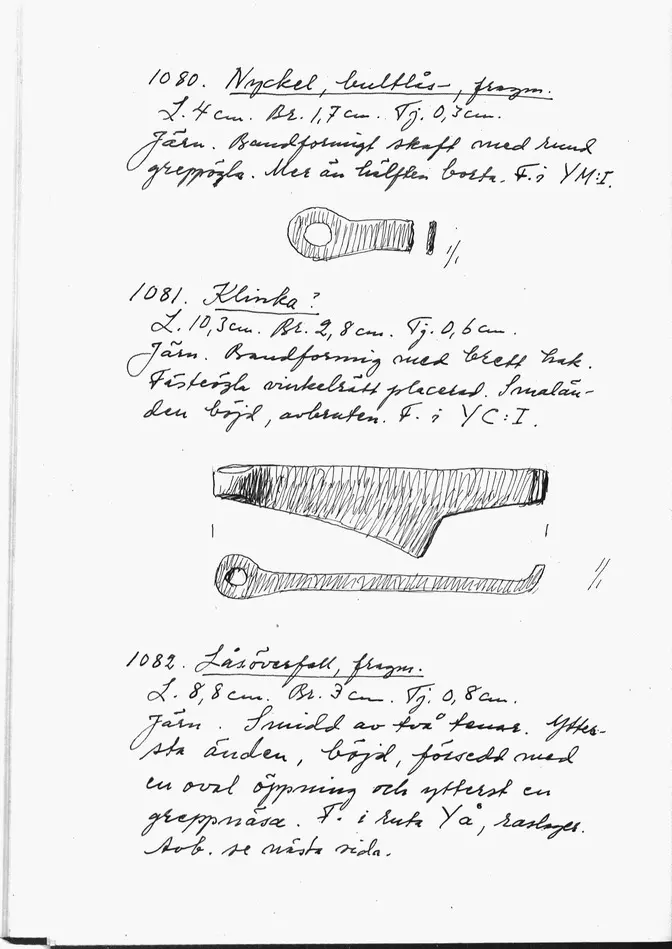 1080. Nyckel, bultlås-, fragm.
L. 4 cm. Br. 1,7 cm. Tj. 0,3 cm.
Järn. Bandformigt skaft med rund
greppögla. Mer än hälften borta. F. i YM:I.
1/1
1081. Klinka?
L. 10,3 cm. Br. 2,8 cm. Tj. 0,6 cm.
Järn. Bandformig med brett hak.
Fästeögla vinkelrätt placerad. Smalän-
den böjd, avbruten. F. i YC:I.
1/1
1082. Låsöverfall, fragm.
L. 8,8 cm. Br. 3 cm. Tj. 0,8 cm.
Järn. Smidd av två tenar. Ytter-
sta änden, böjd, försedd med
en oval öppning och ytterst en
greppnäsa. F. i ruta YÅ, raslager.
Avb. se nästa sida.